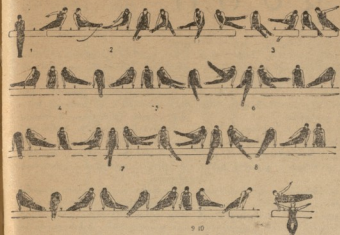 1 2 3
4 5 6
7 8
9 10